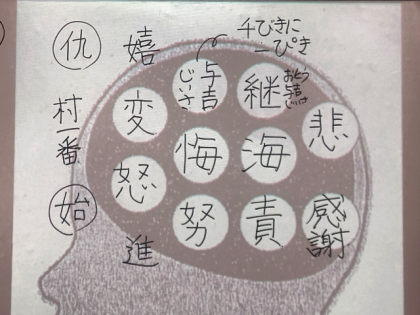 千びきに
一ぴき
仇
嬉
与吉
じいさ
継
おとう
与吉
じいさ
悲
村一番
変
悔
海
怒
始
努
責
感
謝
進